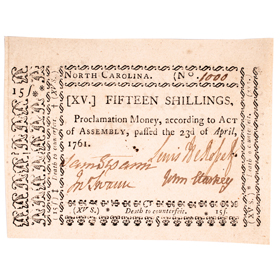 NORTH CAROLINA. (No. 1000
15ſ
[XV.] FIFTEEN SHILLINGS,
Proclamation Money, according to ACT
of ASSEMBLY, passed the 23d of April,
1761.
Sam Swann Lewis DeRosset
Jn Swann John Starkey
(XV S.) Death to counterfeit. 15ſ.